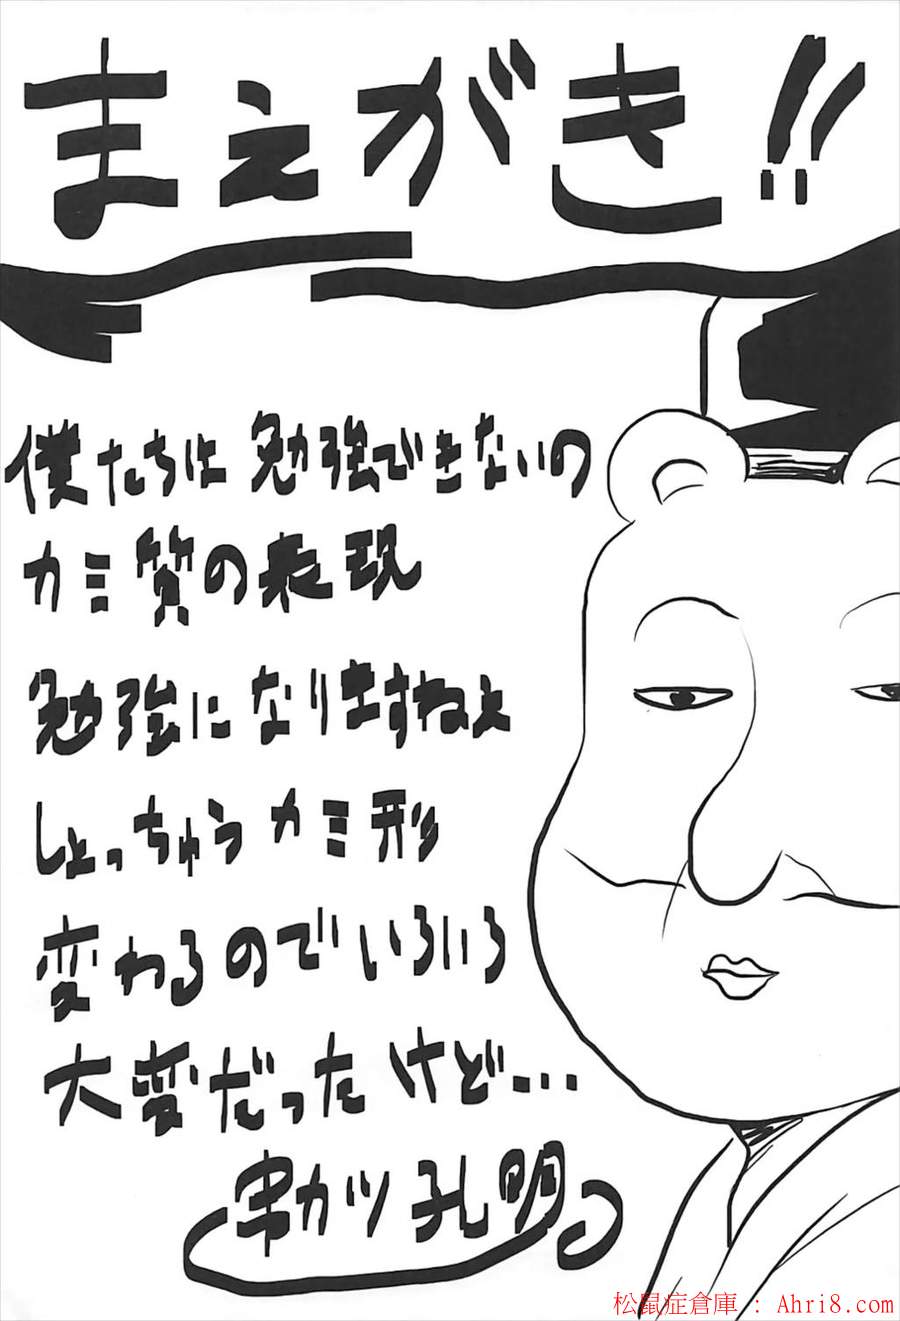 まえがき!!
僕たちは勉強できないの
カミ質の表現
勉強になりますねぇ
しょっちゅうカミ形
変わるのでいろいろ
大変だったけど…
串カツ孔明
松鼠症倉庫 : Ahri8.com